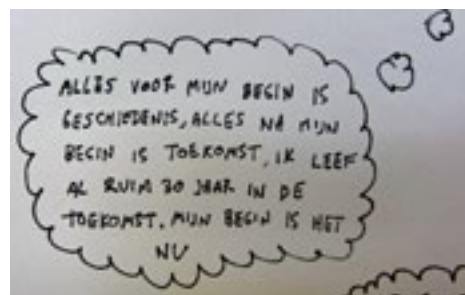 ALLES VOOR MIJN BEGIN IS
GESCHIEDENIS, ALLES NA MIJN
BEGIN IS TOEKOMST, IK LEEF
AL RUIM 30 JAAR IN DE
TOEKOMST. MIJN BEGIN IS HET
NU